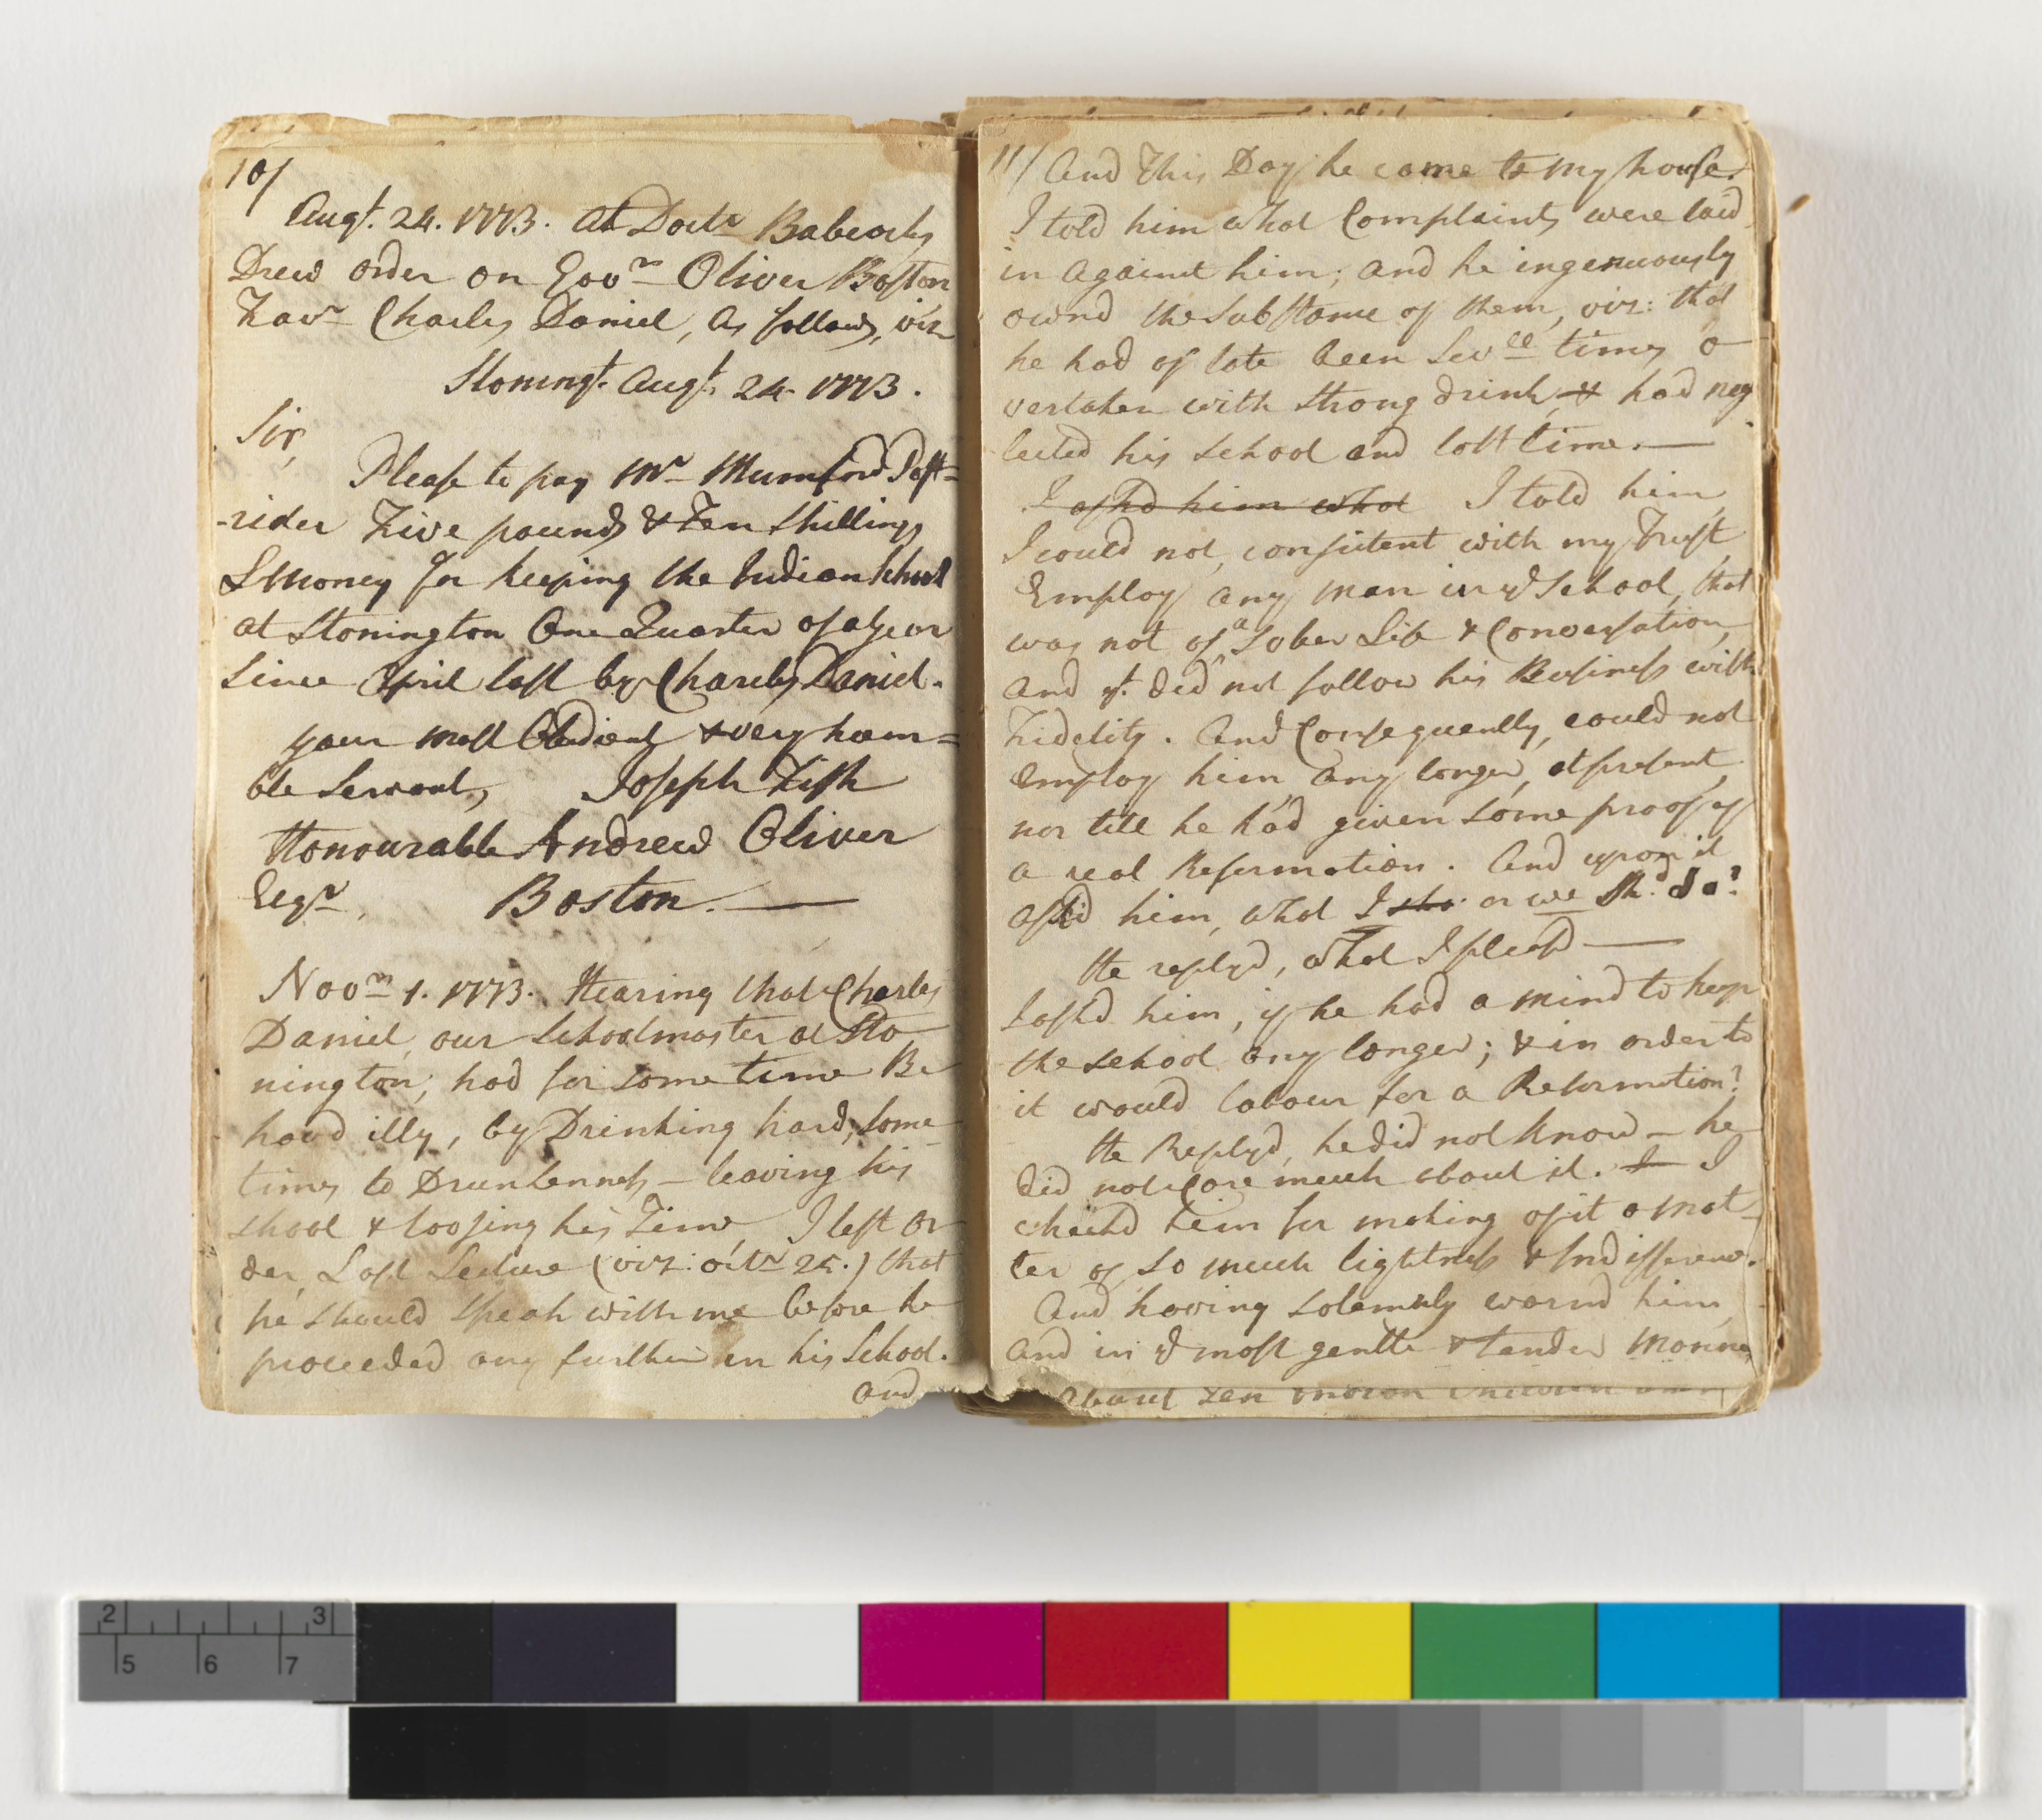 10/
Augt. 24. 1773. At Doctr Babcocks
Drew order on Govr Oliver Boston
Favr Charles Daniel, as follows, viz
Stoningt. Augt. 24. 1773.
Sir,
Please to pay Mr Mumford Post=
-rider Five pounds & Ten Shillings
LMoney for keeping the Indian School
at Stonington One Quarter of a year
Since April last by Charles Daniel.
your most Obedient & very hum=
ble Servant, Joseph Fish
Honourable Andrew Oliver
Esqr. Boston.
Novm 1. 1773. Hearing that Charles
Daniel, our Schoolmaster at Sto
nington, had for some time Be
havd illy, by Drinking hard, some
times to Drunkenness – leaving his
school & loosing his Time, I left Or
der, Last Lecture (viz: octr 25.) that
he should speak with me before he
proceeded any further in his School.
and
11/ And This Day he came to my house.
I told him what Complaints were laid
in against him; and he ingenuously
ownd the Substance of them, viz: that
he had of late been Sevll times o
vertaken with strong drink, & had neg
lected his school and lost time.
I askd him what I told him,
I could not, consistent with my Trust,
Employ any man in ye School, that
was not of a Sober Life & Conversation,
and yt. did not follow his Business with
Fidelity. And Consequently, could not
employ him any longer, at present,
nor till he had given some proof of
a real Reformation. And upon it
askd him, what I sho or we Shd. do?
He replyd, what I pleasd
I askd him, if he had a mind to keep
the school any longer; & in order to
it would labour for a Reformation?
He Replyd, he did not know – he
did not Care much about it. I I
checkd him for making of it a mat-
ter of so much lightness & Indifference.
And having solemnly warnd him,
and in ye most gentle & tender Manner
About Ten Indian Children